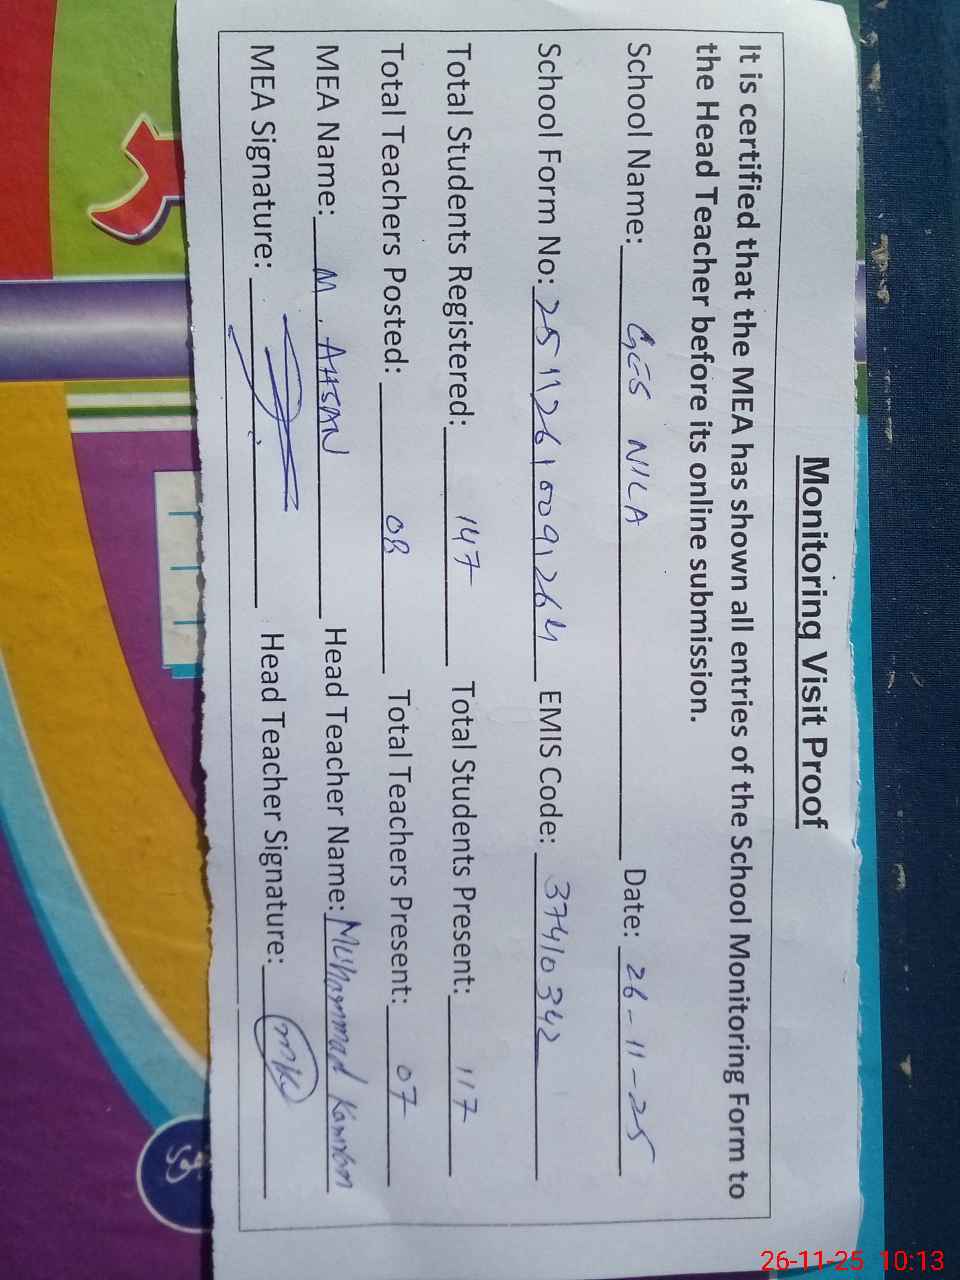 Monitoring Visit Proof
It is certified that the MEA has shown all entries of the School Monitoring Form to
the Head Teacher before its online submission.
School Name: GES NILA Date: 26-11-25
School Form No: 25112610091264 EMIS Code: 37410342
Total Students Registered: 147 Total Students Present: 117
Total Teachers Posted: 08 Total Teachers Present: 07
MEA Name: M. AHSAN Head Teacher Name: Muhammad Kamran
MEA Signature: Head Teacher Signature: MK
26-11-25 10:13